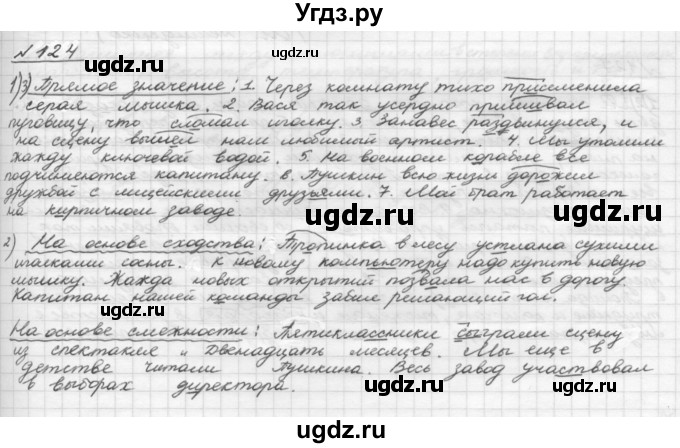 Угдз.ру
№ 124
1)3) Прямое значение: 1. Через комнату тихо присеменила
серая мышка. 2. Вася так усердно пришивал
пуговицу, что сломал иголку. 3. Занавес раздвинулся, и
на сцену вышел нам любимый артист. 4. Мы утолили
жажду ключевой водой. 5. На военном корабле все
подчиняются капитану. 6. Пушкин всю жизни дорожил
дружбой с лицейскими друзьями. 7. Мой брат работает
на кирпичном заводе.
2) На основе сходства: Тропинка в лесу устлана сухими
иголками сосны. К новому компьютеру надо купить новую
мышку. Жажда новых открытий позвала нас в дорогу.
Капитан нашей команды забил решающий гол.
На основе смежности: Пятиклассники сыграли сцену
из спектакля „Двенадцать месяцев. Мы еще в
детстве читали Пушкина. Весь завод участвовал
в выборах директора.
ugdz.ru ugdz.ru ugdz.ru
ugdz.ru ugdz.ru
ugdz.ru ugdz.ru
ugdz.ru ugdz.ru
ugdz.ru ugdz.ru
ugdz.ru